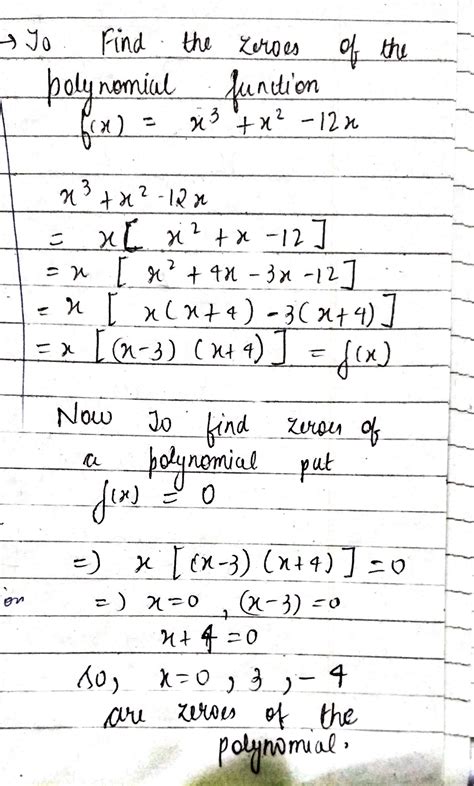 → To Find the zeroes of the
polynomial function
f(x) = x³ + x² - 12x
x³ + x² - 12x
= x [ x² + x - 12 ]
= x [ x² + 4x - 3x - 12 ]
= x [ x(x+4) - 3(x+4) ]
= x [ (x-3) (x+4) ] = f(x)
Now To find zeroes of
a polynomial put
f(x) = 0
=) x [ (x-3) (x+4) ] = 0
=) x=0 , (x-3) =0
x+4 =0
so, x=0 , 3 , -4
are zeroes of the
polynomial.